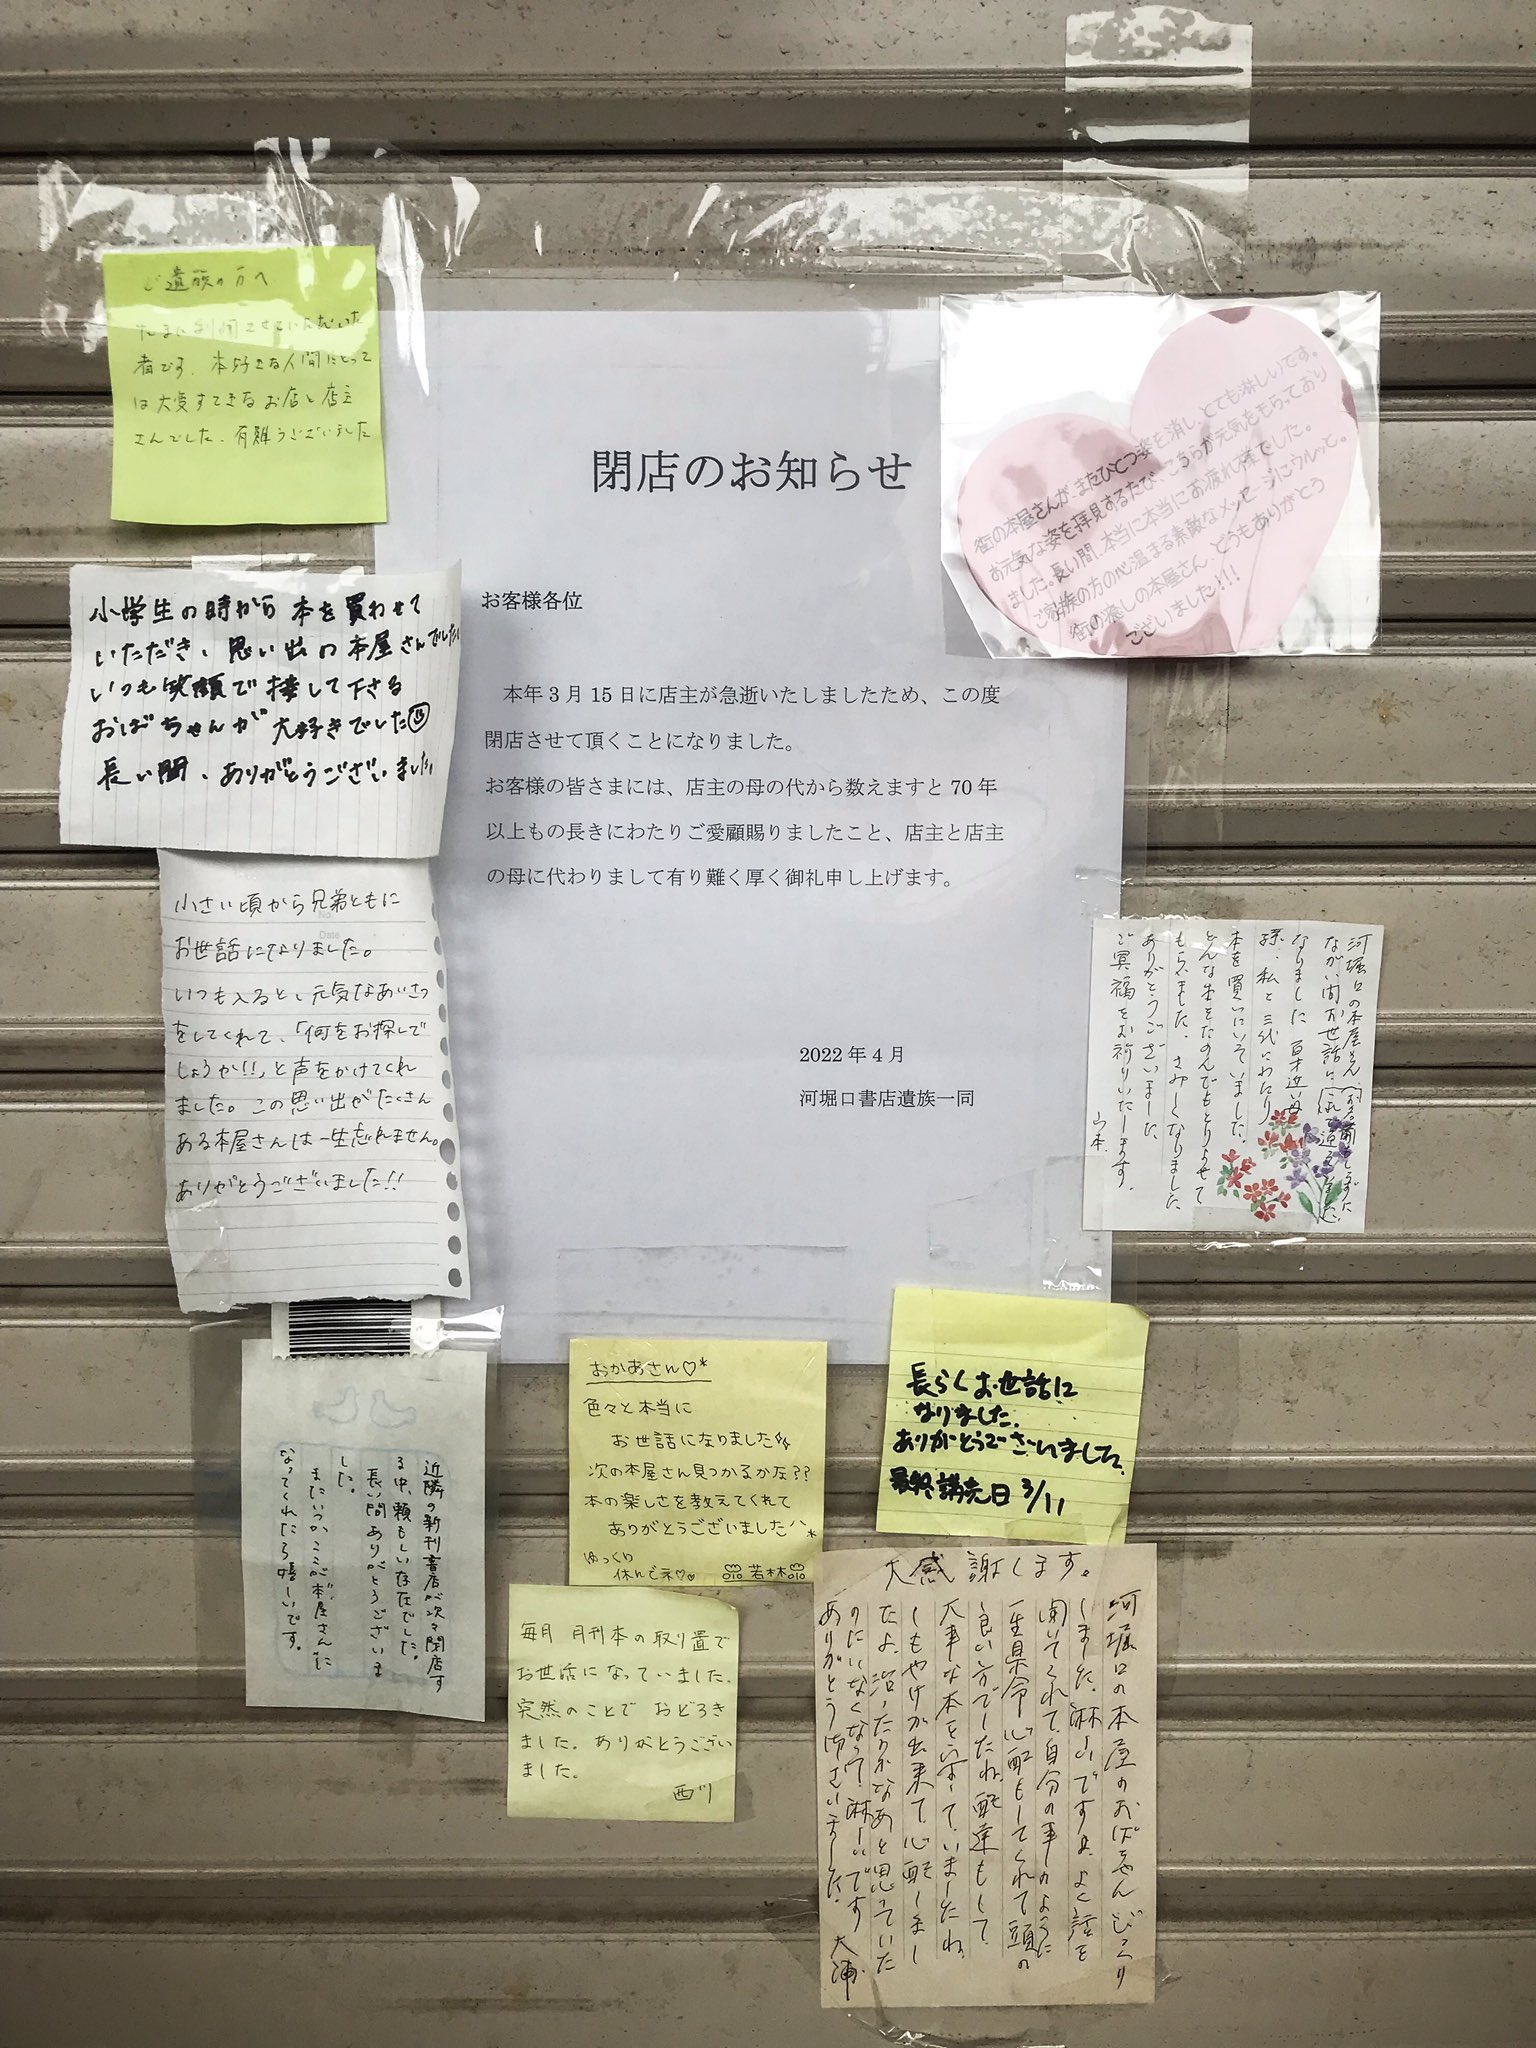 閉店のお知らせ
お客様各位
本年3月15日に店主が急逝いたしましたため、この度
閉店させて頂くことになりました。
お客様の皆さまには、店主の母の代から数えますと70年
以上もの長きにわたりご愛顧賜りましたこと、店主と店主
の母に代わりまして有り難く厚く御礼申し上げます。
2022年4月
河堀口書店遺族一同
ご遺族の方へ
たまに利用させていただいた
者です。本好きな人間にとって
は大変すてきなお店と店主
さんでした。有難うございました
街の本屋さんが、またひとつ姿を消し、とても淋しいです。
お元気な姿を拝見するたび、こちらが元気をもらっており
ました。長い間、本当に本当にお疲れ様でした。
ご家族の方の心温まる素敵なメッセージにウルッと。
街の癒しの本屋さん、どうもありがとう
ございました!!!
小学生の時から本を買わせて
いただき、思い出の本屋さんでした
いつも笑顔で接して下さる
おばちゃんが大好きでした
長い間、ありがとうございました
小さい頃から兄弟ともに
お世話になりました。
いつも入ると、元気なあいさつ
をしてくれて、「何をお探しで
しょうか!!」と声をかけてくれ
ました。この思い出がたくさん
ある本屋さんは一生忘れません。
ありがとうございました!!
No.
Date
河堀口の本屋さん
ながい間お世話に
なりました 百才近い母
孫、私と三代にわたり
本を買いにいていました。
どんな本をたのんでもとりよせて
もらいました。さみしくなりました
ありがとうございました。
ご冥福をお祈りいたします。
山本
近隣の新刊書店が次々閉店す
る中、頼もしい存在でした。
長い間ありがとうございま
した。
またいつかここが本屋さんに
なってくれたら嬉しいです。
おかあさん♡*
色々と本当に
お世話になりました
次の本屋さん見つかるかな??
本の楽しさを教えてくれて
ありがとうございました^^*
ゆっくり
休んでネ♡♡
若林
長らくお世話に
なりました。
ありがとうございました。
最終講売日 3/11
毎月 月刊本の取り置で
お世話になっていました。
突然のことで おどろき
ました。ありがとうござい
ました。
西川
大感謝します。
河堀口の本屋のおばちゃんびっくり
しました。淋しいですよ、よく話を
聞いてくれて、自分の事のように
一生県命心配もしてくれて頭の
良い方でしたね。配達もして
大事な本をいすーて、いましたね。
しもやけが出来て心配しまし
たよ。治ったかなあと思っていた
のにいなくなって淋しいです
ありがとう御ざいました。
大浦